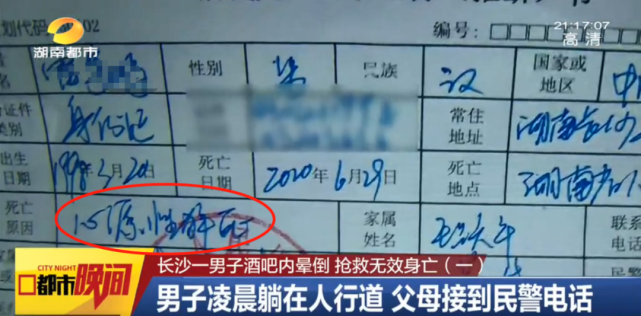 湖南都市
21:17:07
高清
划代码 02
编号:
名 性别 男 民族 汉 国家或地区 中
证件类别 身份证 常住地址 湖南省长沙
出生日期 1998年3月20 死亡日期 2020年6月29日 死亡地点 湖南省
死亡原因 心源性猝死 家属姓名 联系电话
长沙一男子酒吧内晕倒 抢救无效身亡(一)
CITY NIGHT
都市晚间
男子凌晨躺在人行道 父母接到民警电话